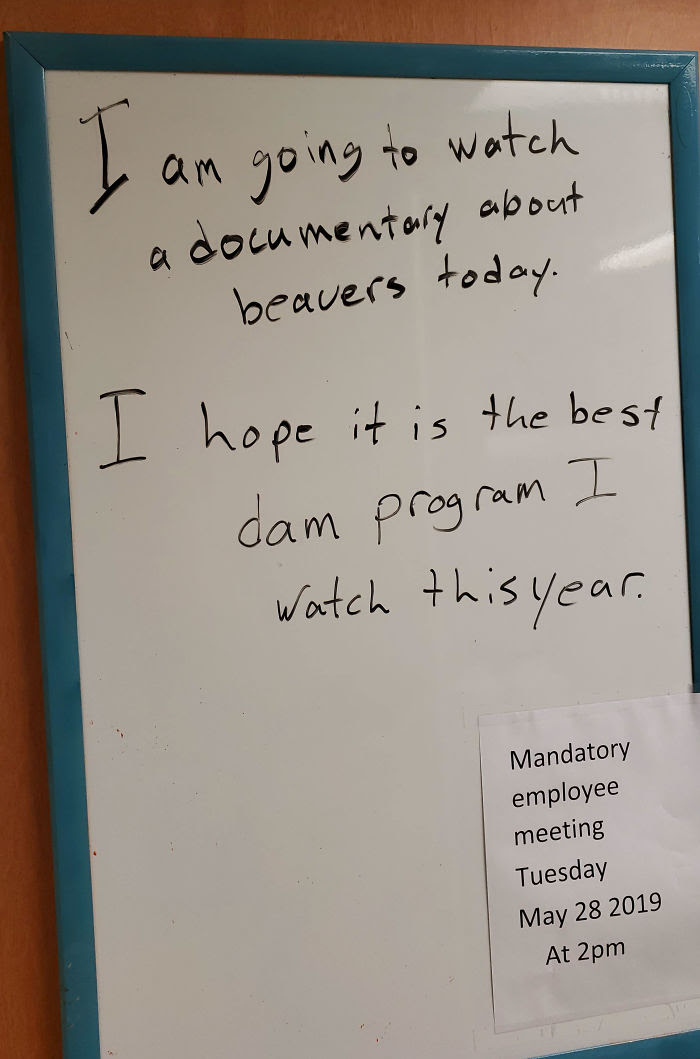 I am going to watch
a documentary about
beavers today.
I hope it is the best
dam program I
watch this year.
Mandatory
employee
meeting
Tuesday
May 28 2019
At 2pm